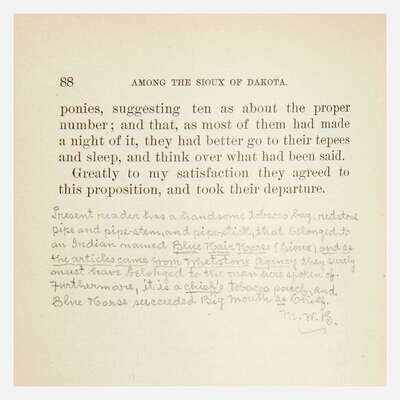 88 AMONG THE SIOUX OF DAKOTA.
ponies, suggesting ten as about the proper
number; and that, as most of them had made
a night of it, they had better go to their tepees
and sleep, and think over what had been said.
Greatly to my satisfaction they agreed to
this proposition, and took their departure.
Present reader has a handsome tobacco bag, redstone
pipe and pipe-stem, and pipestick, that belonged to
an Indian named Blue Hair Horse (Sioux, and as
the articles came from Whetstone Agency they surely
must have belonged to the man here spoken of.
Furthermore, it is a chief's tobacco pouch, and
Blue Horse succeeded Big Mouth as Chief.
M.W.